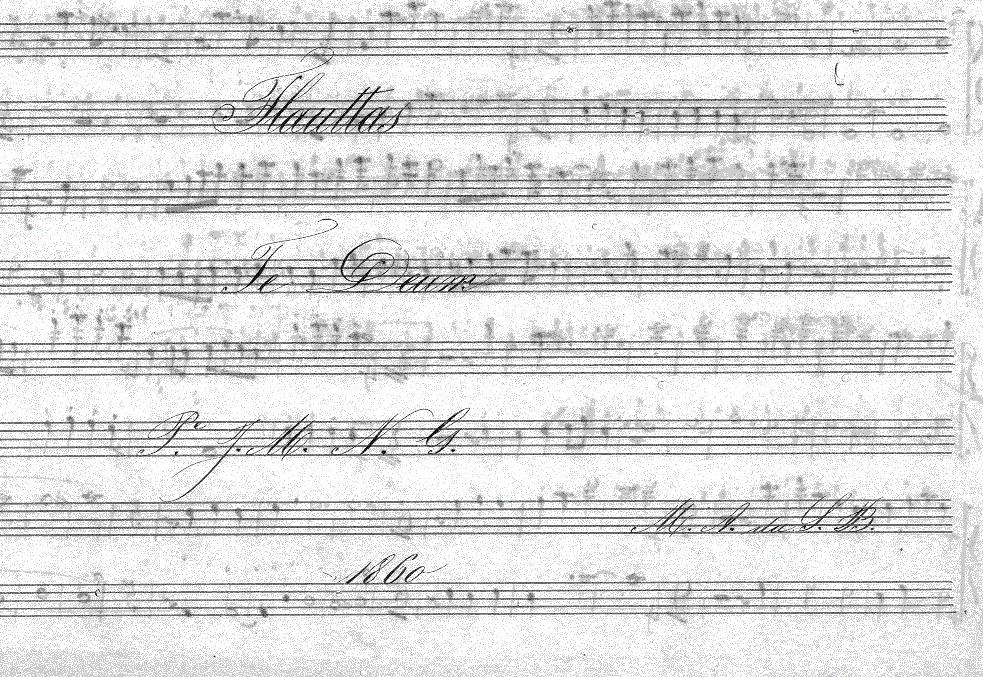 Flauttas
Te Deum
P.e J. M. N. G.
M. A. da S. B.
1860